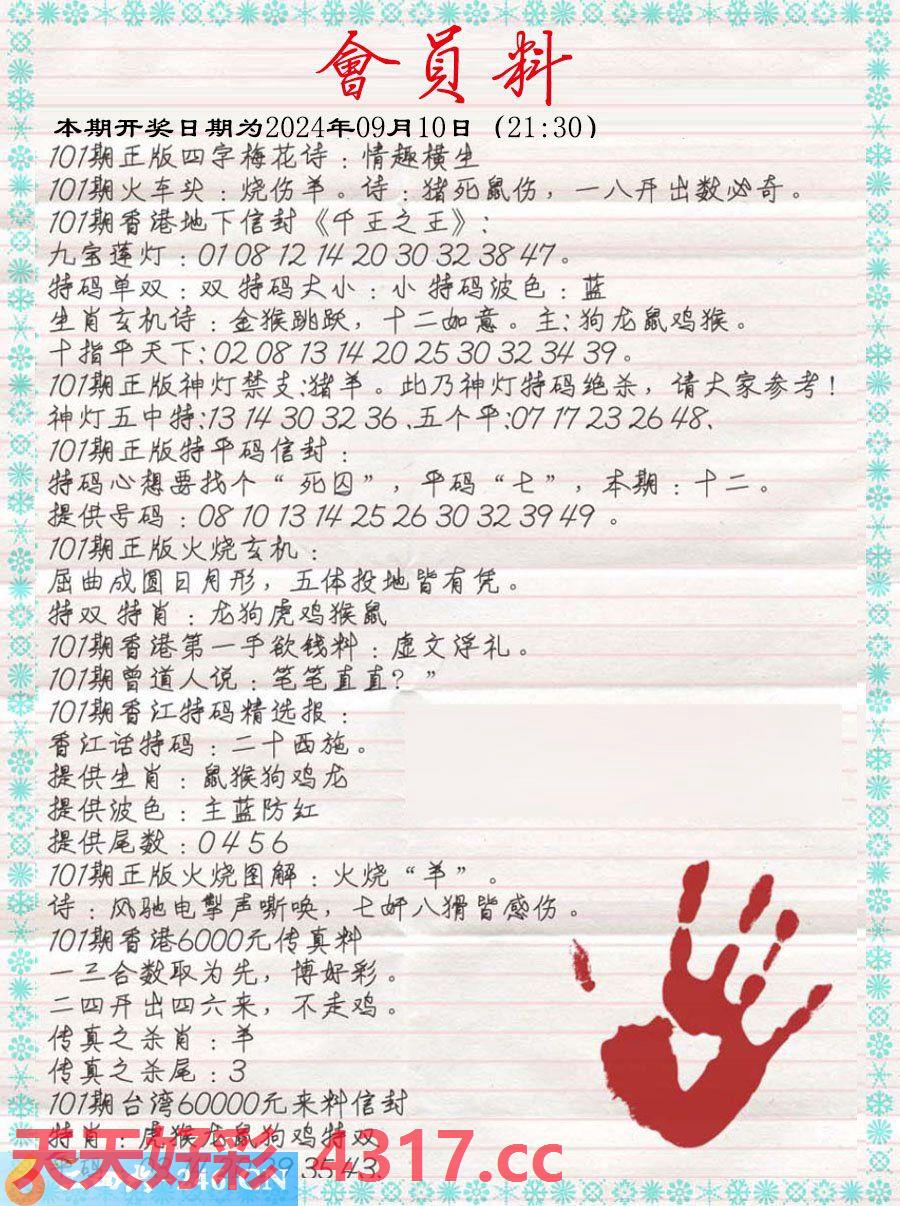 會員料
本期开奖日期为2024年09月10日（21:30）
101期正版四字梅花诗：情趣横生
101期火车头：烧伤羊。诗：猪死鼠伤，一八开出数必奇。
101期香港地下信封《千王之王》：
九宝莲灯：01 08 12 14 20 30 32 38 47。
特码单双：双 特码大小：小 特码波色：蓝
生肖玄机诗：金猴跳跃，十二如意。主：狗龙鼠鸡猴。
十指平天下：02 08 13 14 20 25 30 32 34 39。
101期正版神灯禁支：猪羊。此乃神灯特码绝杀，请大家参考！
神灯五中特：13 14 30 32 36、五个平：07 17 23 26 48、
101期正版特平码信封：
特码心想要找个“死囚”，平码“七”，本期：十二。
提供号码：08 10 13 14 25 26 30 32 39 49 。
101期正版火烧玄机：
屈曲成圆日月形，五体投地皆有凭。
特双 特肖：龙狗虎鸡猴鼠
101期香港第一手欲钱料：虚文浮礼。
101期曾道人说：笔笔直直？”
101期香江特码精选报：
香江话特码：二十西施。
提供生肖：鼠猴狗鸡龙
提供波色：主蓝防红
提供尾数：0 4 5 6
101期正版火烧图解：火烧“羊”。
诗：风驰电掣声嘶唤，七奸八猾皆感伤。
101期香港6000元传真料
一三合数取为先，博好彩。
二四开出四六来，不走鸡。
传真之杀肖：羊
传真之杀尾：3
101期台湾60000元来料信封
特肖：虎猴龙鼠狗鸡特双
35 43
天天好彩 4317.cc